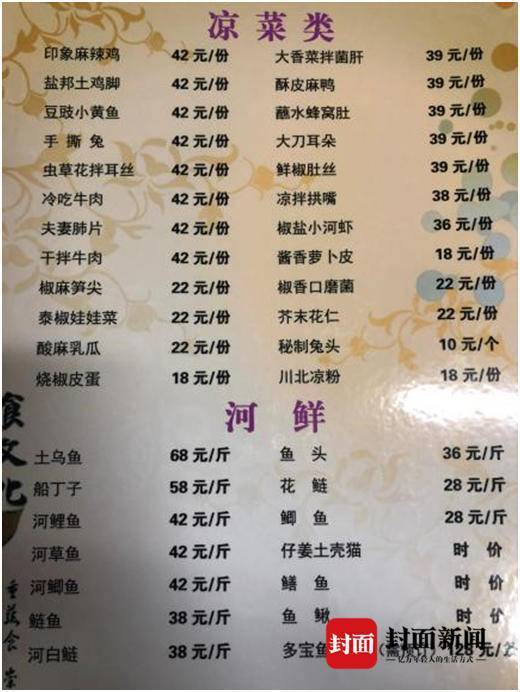 凉菜类
印象麻辣鸡 42元/份 大香菜拌菌肝 39元/份
盐邦土鸡脚 42元/份 酥皮麻鸭 39元/份
豆豉小黄鱼 42元/份 蘸水蜂窝肚 39元/份
手撕兔 42元/份 大刀耳朵 39元/份
虫草花拌耳丝 42元/份 鲜椒肚丝 39元/份
冷吃牛肉 42元/份 凉拌拱嘴 38元/份
夫妻肺片 42元/份 椒盐小河虾 36元/份
干拌牛肉 42元/份 酱香萝卜皮 18元/份
椒麻笋尖 22元/份 椒香口磨菌 22元/份
泰椒娃娃菜 22元/份 芥末花仁 22元/份
酸麻乳瓜 22元/份 秘制兔头 10元/个
烧椒皮蛋 18元/份 川北凉粉 18元/份
河鲜
土乌鱼 68元/斤 鱼头 36元/斤
船丁子 58元/斤 花鲢 28元/斤
河鲤鱼 42元/斤 鲫鱼 28元/斤
河草鱼 42元/斤 仔姜土壳猫 时价
河鲫鱼 42元/斤 鳝鱼 时价
鲢鱼 38元/斤 鱼鳅 时价
河白鲢 38元/斤 多宝鱼 (需预订) 128元/
食文化
封面
封面新闻
亿万年轻人的生活方式